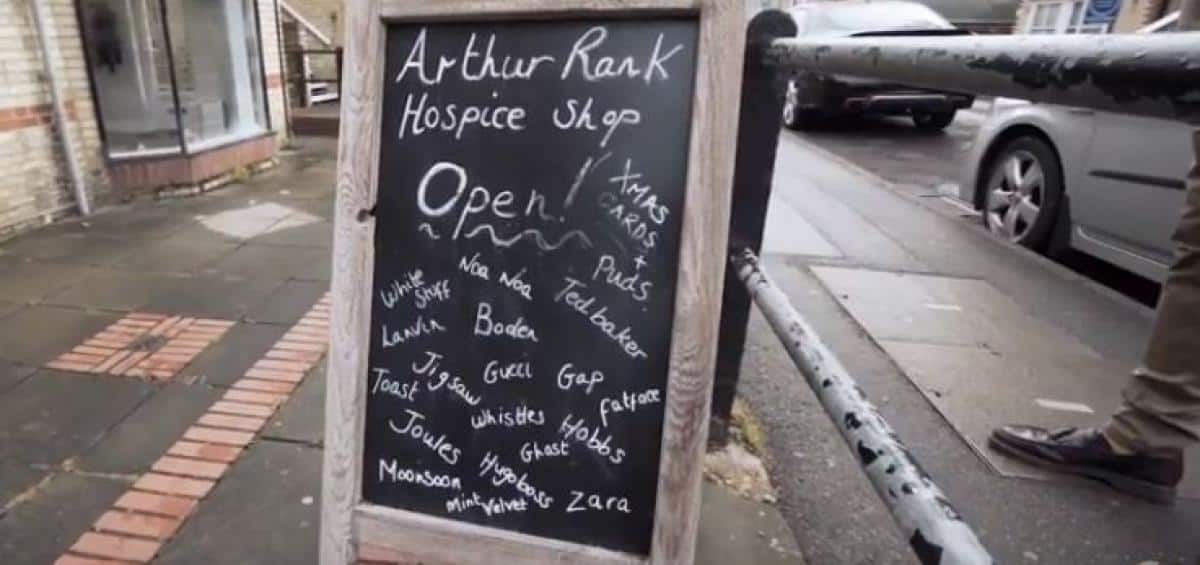 Arthur Rank
Hospice Shop
Open!
XMAS
CARDS
+
Puds.
Noa Noa
White
Stuff
Tedbaker
Lanvin
Boden
Jigsaw
Gucci
Gap
Toast
Fatface
Whistles
Hobbs
Joules
Ghost
Moonsoon
Hugoboss
Mint Velvet
Zara